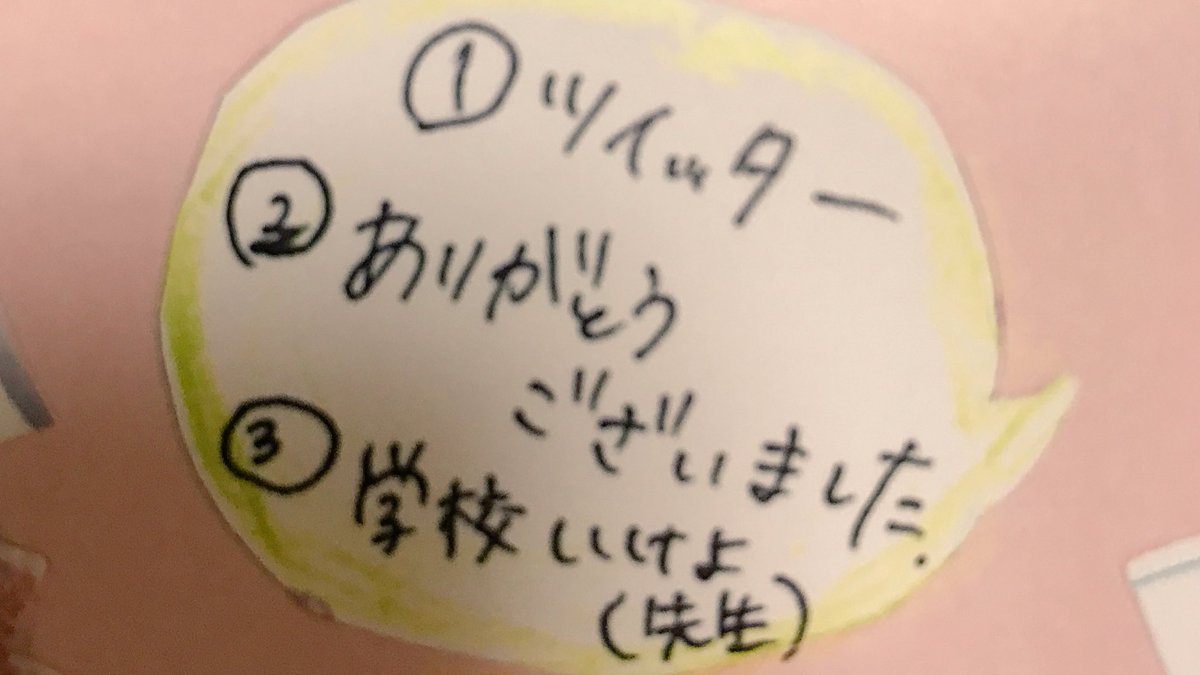 ①ツイッター
②ありがとう
ございました.
③学校いけよ
(先生)